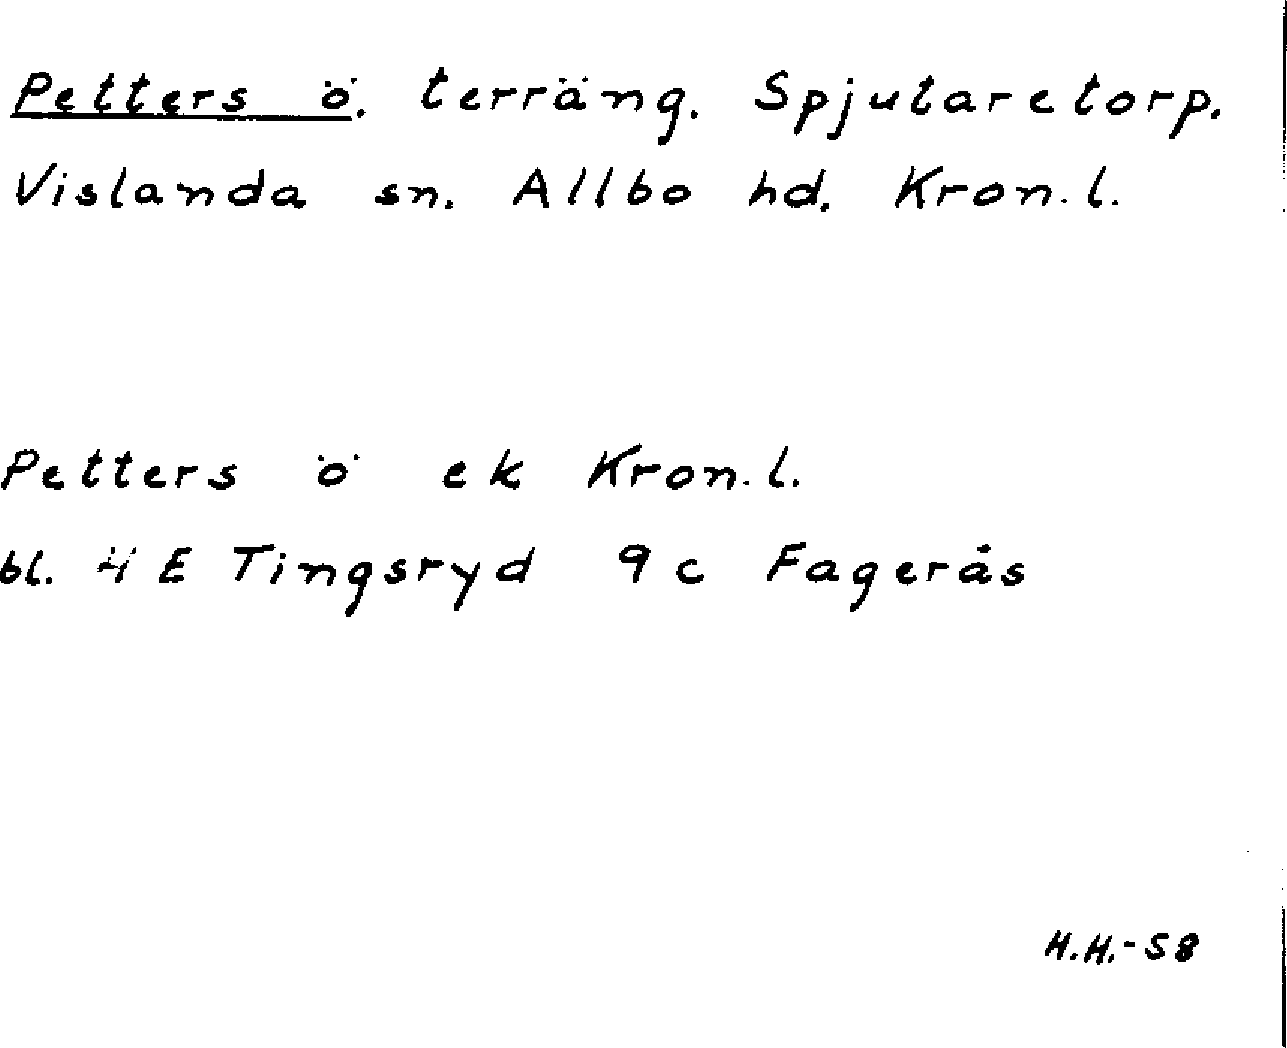 Petters ö. terräng. Spjutaretorp.
Vislanda sn. Allbo hd. Kron.l.
Petters ö ek Kron.l.
bl. 4 E Tingsryd 9 c Fagerås
H.H.-58